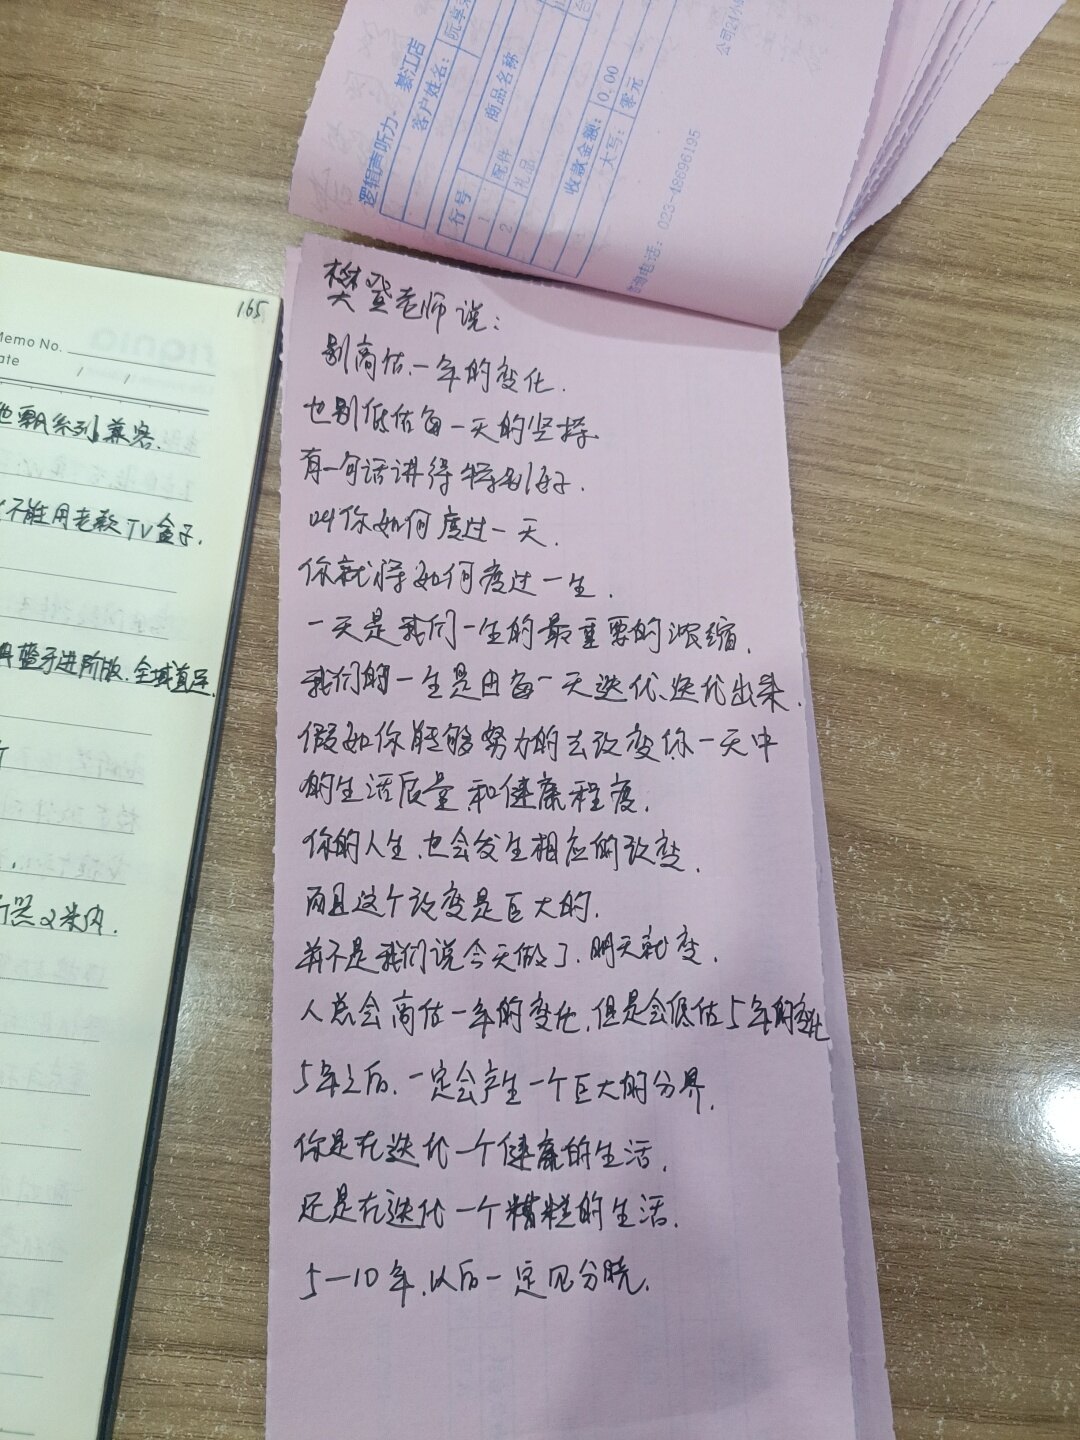 逻辑声听力: 綦江店
客户姓名:
行号 商品名称
1 配件
2 礼品
收款金额: 0.00
大写: 零元
电话: 023-48696195
165
Memo No.
/ /
系列兼容.
不能用老款TV盒子.
蓝牙进阶版.全域直连.
2米内.
樊登老师说:
别高估.一年的变化.
也别低估每一天的坚持.
有一句话讲得特别好.
叫你如何度过一天.
你就将如何度过一生.
一天是我们一生的最重要的浓缩.
我们的一生是由每一天迭代、迭代出来.
假如你能够努力的去改变你一天中
的生活质量和健康程度.
你的人生.也会发生相应的改变.
而且这个改变是巨大的.
并不是我们说今天做了.明天就变.
人总会高估一年的变化.但是会低估5年的变化
5年之后.一定会产生一个巨大的分界.
你是在迭代一个健康的生活.
还是在迭代一个糟糕的生活.
5—10年.以后一定见分晓.